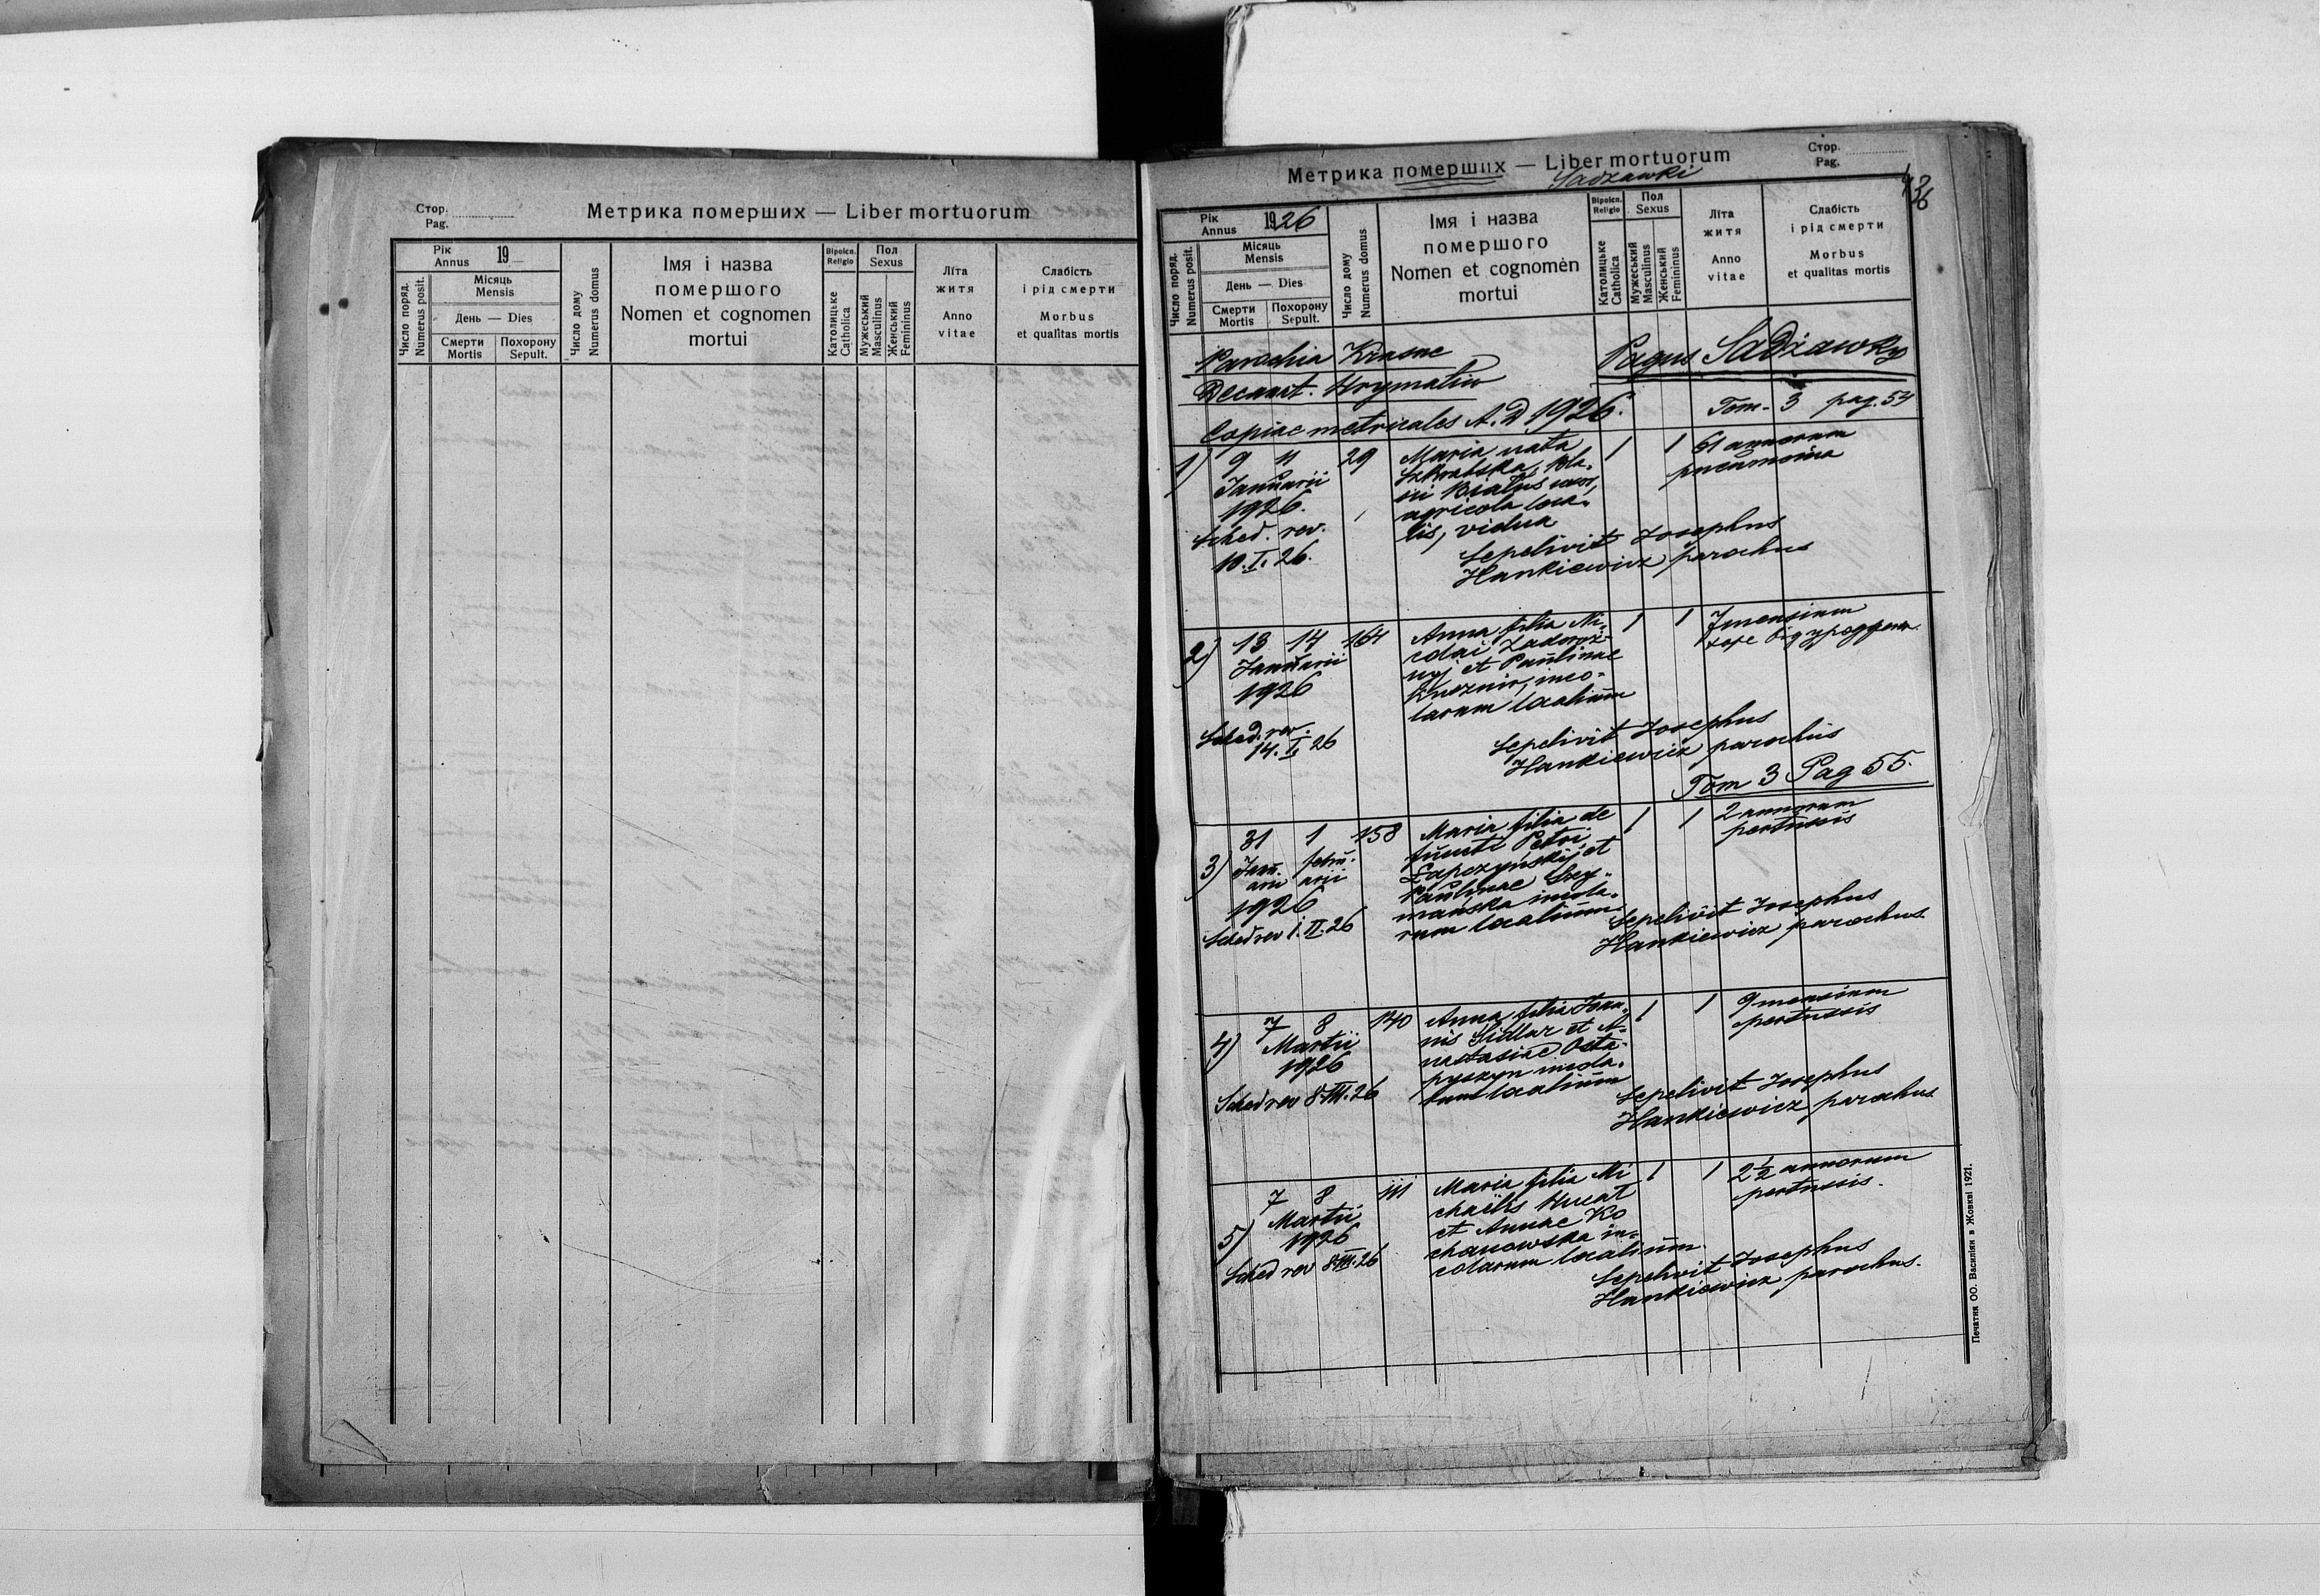 Стор.
Pag.
Метрика померших — Liber mortuorum
Рік
Annus
19
Число поряд.
Numerus posit.
Місяць
Mensis
День — Dies
Смерти
Mortis
Похорону
Sepult.
Число дому
Numerus domus
Імя і назва
помершого
Nomen et cognomen
mortui
Віроісп.
Religio
Католицьке
Catholica
Пол
Sexus
Мужеський
Masculinus
Женський
Femininus
Літа
життя
Anno
vitae
Слабість
і рід смерти
Morbus
et qualitas mortis
Метрика померших — Liber mortuorum
Sadzawki
Стор.
Pag.
Рік
Annus
1926
Число поряд.
Numerus posit.
Місяць
Mensis
День — Dies
Смерти
Mortis
Похорону
Sepult.
Число дому
Numerus domus
Імя і назва
помершого
Nomen et cognomen
mortui
Віроісп.
Religio
Католицьке
Catholica
Пол
Sexus
Мужеський
Masculinus
Женський
Femininus
Літа
життя
Anno
vitae
Слабість
і рід смерти
Morbus
et qualitas mortis
Parochia Krasne
Pagus Sadżawky
Decanat. Hrymaliw
Copiae metricales A.D 1926.
Tom. 3 pag. 54
1) 9 11 29 Maria nata 1 1 61 annorum
Januarii pneumonia
1926. agricola loca-
lis, vidua
Sched. rev.
10.I.26.
Sepelivit Josephus
Hankiewicz parochus
2) 13 14 164 Anna filia Ni- 1 1 7 mensium
Januarii colai Zadoroż-
1926 nyj et Paulinae
inco-
larum localium
Sched. rev.
14.I.26
Sepelivit Josephus
Hankiewicz parochus
Tom 3 Pag 55.
3) 31 1 158 Maria filia de 1 1 2 annorum
Janu- febru- functi Petri pertussis
arii arii Łapczyńskij et
1926 Paulinae Szy-
mańska incola-
rum localium
Sched rev 1.II.26
Sepelivit Josephus
Hankiewicz parochus
4) 7 8 140 Anna filia Joan- 1 1 9 mensium
Martii nis Sidlar et A- pertussis
1926 nastasiae Osta-
pyszyn incola-
rum localium
Sched rev 8.III.26
Sepelivit Josephus
Hankiewicz parochus
5) 7 8 111 Maria filia Mi 1 1 2 ½ annorum
Martii chaelis Hucat pertussis.
1926 et Annae Ko
chanowska in-
colarum localium.
Sched rev 8.III.26
Sepelivit Josephus
Hankiewicz parochus.
Печатня ОО. Василіян в Жовкві 1921.